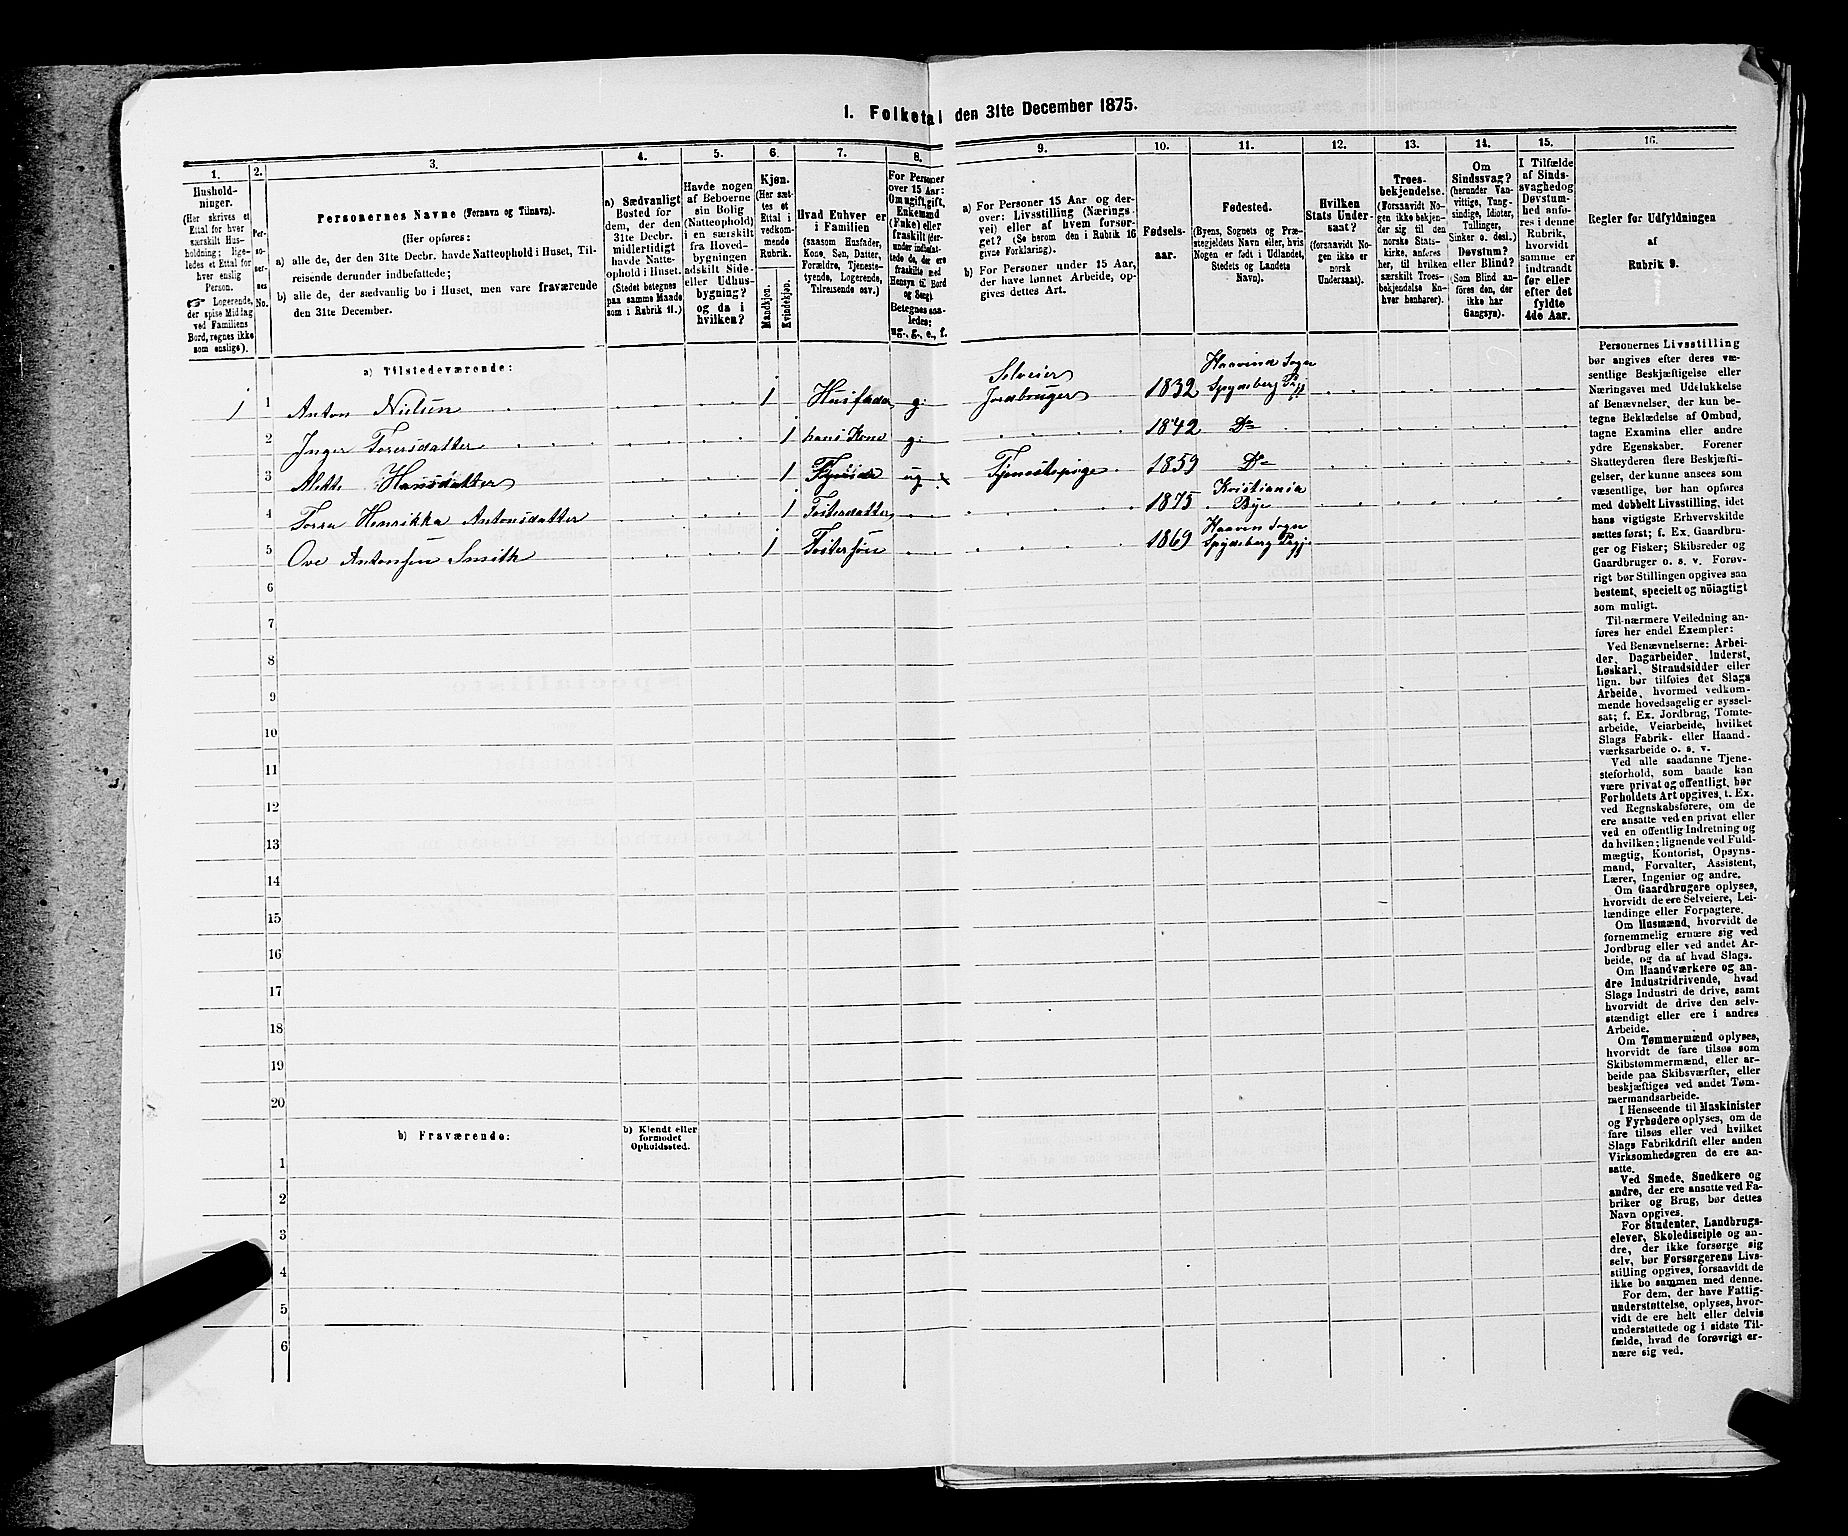 1. Folketal den 31te December 1875.
1.
2.
3.
4.
5.
6.
7.
8.
9.
10.
11.
12.
13.
14.
15.
16.
Hushold-
ninger.
(Her skrives et
Ettal for hver
særskilt Hus-
holdning; lige-
ledes et Ettal for
hver enslig
Person.
☞ Logerende,
der spise Middag
ved Familiens
Bord, regnes ikke
som enslige).
Per-
so-
ner-
nes
No.
Personernes Navne (Fornavn og Tilnavn).
(Her opføres:
a) alle de, der den 31te Decbr. havde Natteophold i Huset, Til-
reisende derunder indbefattede;
b) alle de, der sædvanlig bo i Huset, men vare fraværende
den 31te December.
a) Sædvanligt
Bosted for
dem, der den
31te Decbr.
midlertidigt
havde Natte-
ophold i Huset.
(Stedet betegnes
paa samme Maade
som i Rubrik 11.)
Havde nogen
af Beboerne
sin Bolig
(Natteophold)
i en særskilt
fra Hoved-
bygningen
adskilt Side-
eller Udhus-
bygning?
og da i
hvilken?
Kjøn.
(Her sæt-
tes et
Ettal i
vedkom-
mende
Rubrik.
Mandkjøn.
Kvindekjøn.
Hvad Enhver er
i Familien
(saasom Husfader,
Kone, Søn, Datter,
Forældre, Tjeneste-
tyende, Logerende,
Tilreisende osv.)
For Personer
over 15 Aar:
Om ugift, gift,
Enkemand
(Enke) eller
fraskilt (der-
under indbefat-
tede de, der ere
fraskilte med
Hensyn til Bord
og Seng).
Betegnes saa-
ledes:
ug., g., e., f.
a) For Personer 15 Aar og der-
over: Livsstilling (Nærings-
vei) eller af hvem forsør-
get? (Se herom den i Rubrik 16
givne Forklaring).
b) For Personer under 15 Aar,
der have lønnet Arbeide, op-
gives dettes Art.
Fødsels-
aar.
Fødested.
(Byens, Sognets og Præ-
stegjeldets Navn eller, hvis
Nogen er født i Udlandet,
Stedets og Landets
Navn).
Hvilken
Stats Under-
saat?
(forsaavidt No-
gen ikke er
norsk
Undersaat).
Troes-
bekjendelse.
(Forsaavidt No-
gen ikke bekjen-
der sig til den
norske Stats-
kirke, anføres
her, til hvilken
særskilt Troes-
bekjendelse En-
hver henhører).
Om
Sindssvag?
(herunder Van-
vittige, Tung-
sindige, Idioter,
Tullinger,
Sinker o. desl.)
Døvstum?
eller Blind?
(Som Blind an-
føres den, der
ikke har
Gangsyn).
I Tilfælde
af Sinds-
svaghed og
Døvstum-
hed anfø-
res i denne
Rubrik,
hvorvidt
samme er
indtraadt
før eller
efter det
fyldte
4de Aar.
Regler for Udfyldningen
af
Rubrik 9.
a) Tilstedeværende:
1 1 Anton Nielsen 1 Husfader g. Selveier Jordbruger 1832 Haavind Sogn Spydeberg Pgj
2 Inger Torersdatter 1 hans Kone g. 1842 Do
3 Alette Hansdatter 1 ug Tjenestepige 1859 Do
4 Torra Henrikka Antonsdatter 1 Fosterdatter 1875 Kristiania Bye
5 Ove Antonsen Smith 1 Fostersøn 1869 Haavin Sogn Spydeberg Pgj
6
7
8
9
10
11
12
13
14
15
16
17
18
19
20
b) Fraværende:
b) Kjendt eller
formodet
Opholdssted.
1
2
3
4
5
6
Personernes Livsstilling
bør angives efter deres væ-
sentlige Beskjæftigelse eller
Næringsvei med Udelukkelse
af Benævnelser, der kun be-
tegne Beklædelse af Ombud,
tagne Examina eller andre
ydre Egenskaber. Forener
Skatteyderen flere Beskjæfti-
gelser, der kunne anses som
væsentlige, bør han opføres
med dobbelt Livsstilling, idet
hans vigtigste Erhvervskilde
sættes først; f. Ex. Gaardbru-
ger og Fisker; Skibsreder og
Gaardbruger o. s. v. Forøv-
rigt bør Stillingen opgives saa
bestemt, specielt og nöiagtigt
som muligt.
Til nærmere Veiledning an-
føres her endel Exempler:
Ved Benævnelserne: Arbei-
der, Dagarbeider, Inderst,
Løskarl, Strandsidder eller
lign. bør tilføies det Slags
Arbeide, hvormed vedkom-
mende hovedsagelig er syssel-
sat; f. Ex. Jordbrug, Tomte-
arbeide, Veiarbeide, hvilket
Slags Fabrik- eller Haand-
værksarbeide o. s. v.
Ved alle saadanne Tjene-
steforhold, som baade kan
være privat og offentligt, bør
Forholdets Art opgives, t. Ex.
ved Regnskabsførere, om de
ere ansatte ved en privat eller
ved en offentlig Indretning og
da hvilken; lignende ved Fuld-
mægtig, Kontorist, Opsyns-
mand, Forvalter, Assistent,
Lærer, Ingeniør og andre.
Om Gaardbrugere oplyses,
hvorvidt de ere Selveiere, Lei-
lændinge eller Forpagtere.
Om Husmænd, hvorvidt de
fornemmelig ernære sig ved
Jordbrug eller ved andet Ar-
beide, og da af hvad Slags.
Om Haandværkere og an-
dre Industridrivende, hvad
Slags Industri de drive, samt
hvorvidt de drive den selv-
stændigt eller ere i andres
Arbeide.
Om Tømmermænd oplyses,
hvorvidt de fare tilsøs som
Skibstømmermænd, eller ar-
beide paa Skibsværfter, eller
beskjæftiges ved andet Tøm-
mermandsarbeide.
I Henseende til Maskinister
og Fyrbødere oplyses, om de
fare tilsøs eller ved hvilket
Slags Fabrikdrift eller anden
Virksomhedsgren de ere an-
satte.
Ved Smede, Snedkere og
andre, der ere ansatte ved Fa-
briker og Brug, bør dettes
Navn opgives.
For Studenter, Landbrugs-
elever, Skoledisciple og an-
dre, der ikke forsørge sig
selv, bør Forsørgerens Livs-
stilling opgives, forsaavidt de
ikke bo sammen med denne.
For dem, der have Fattig-
understøttelse, oplyses, hvor-
vidt de ere helt eller delvis
understøttede og i sidste Til-
fælde, hvad de forøvrigt er-
nære sig ved.